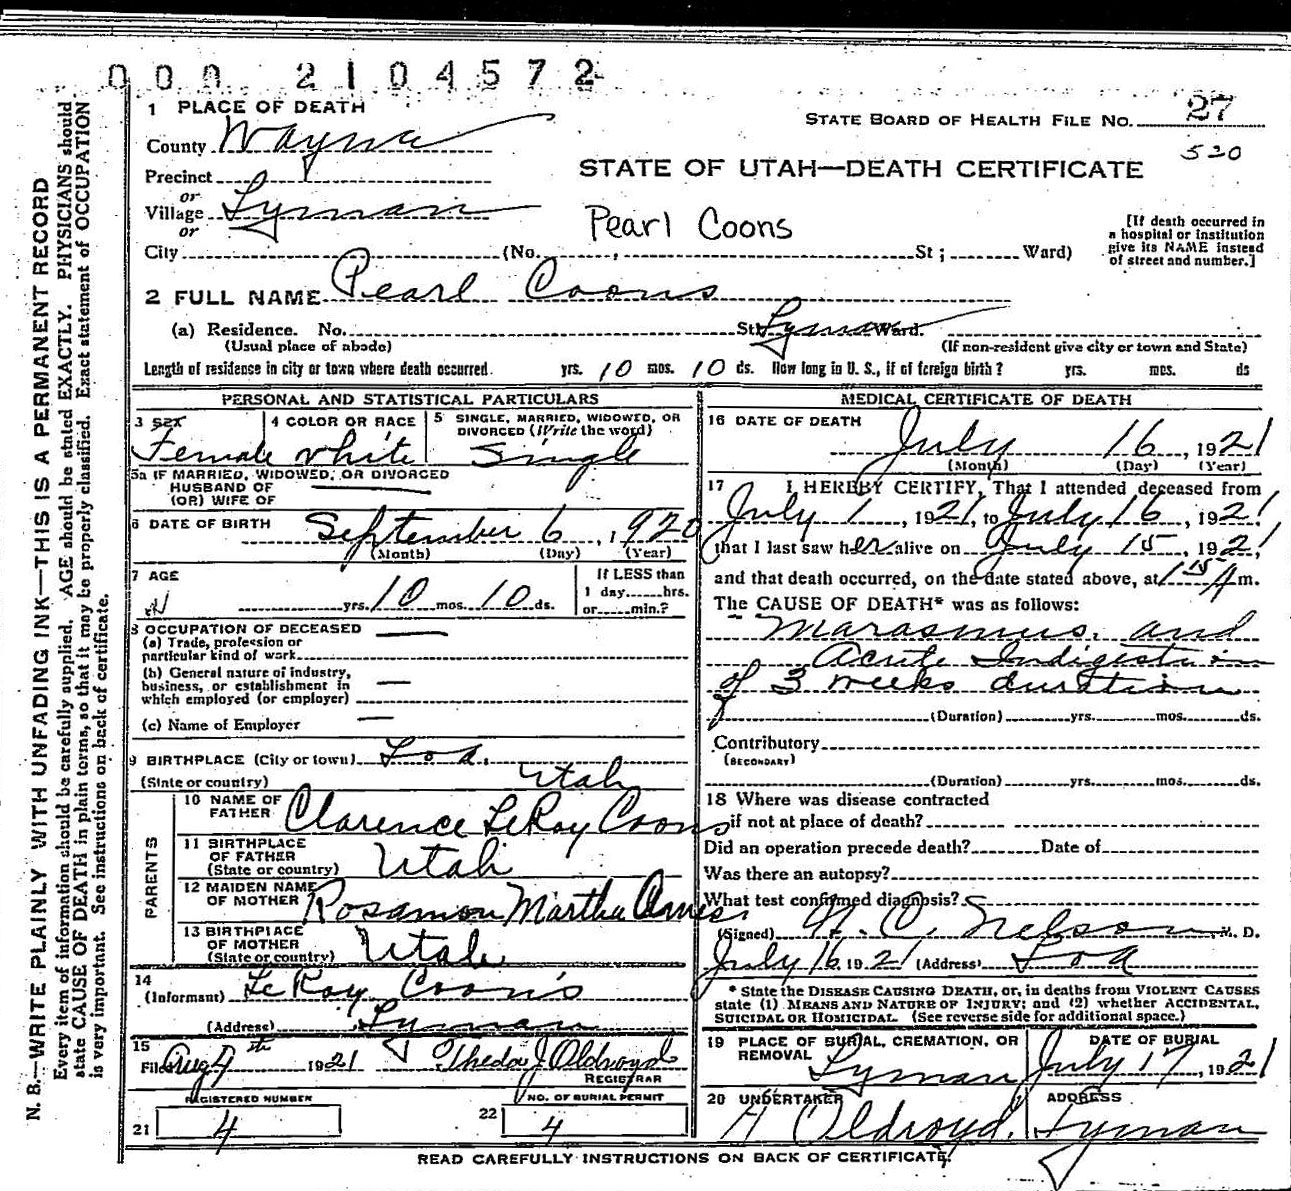 000 2104572
1 PLACE OF DEATH
STATE BOARD OF HEALTH FILE NO. 27
520
County Wayne
STATE OF UTAH—DEATH CERTIFICATE
Precinct
or
Village Lyman
or
Pearl Coons
[If death occurred in
a hospital or institution
give its NAME instead
of street and number.]
City (No. , St ; Ward)
2 FULL NAME Pearl Coons
(a) Residence. No. St. Lyman Ward.
(Usual place of abode) (If non-resident give city or town and State)
Length of residence in city or town where death occurred. yrs. 10 mos. 10 ds. How long in U. S., if of foreign birth? yrs. mos. ds
PERSONAL AND STATISTICAL PARTICULARS
3 SEX
Female
4 COLOR OR RACE
White
5 SINGLE, MARRIED, WIDOWED, OR
DIVORCED (Write the word)
Single
5a IF MARRIED, WIDOWED, OR DIVORCED
HUSBAND OF
(OR) WIFE OF
6 DATE OF BIRTH September 6, 1920
(Month) (Day) (Year)
7 AGE
yrs. 10 mos. 10 ds.
If LESS than
1 day hrs.
or min.?
8 OCCUPATION OF DECEASED
(a) Trade, profession or
particular kind of work
(b) General nature of industry,
business, or establishment in
which employed (or employer)
(c) Name of Employer
9 BIRTHPLACE (City or town) Loa.
(State or country) Utah
PARENTS
10 NAME OF
FATHER Clarence LeRoy Coons
11 BIRTHPLACE
OF FATHER
(State or country) Utah
12 MAIDEN NAME
OF MOTHER Rosamon Martha
13 BIRTHPLACE
OF MOTHER
(State or country) Utah
14
(Informant) LeRoy Coons
(Address) Lyman
15
Filed Aug 4th 1921 Theda J Oldroyd
REGISTRAR
REGISTERED NUMBER
21 4
NO. OF BURIAL PERMIT
22 4
MEDICAL CERTIFICATE OF DEATH
16 DATE OF DEATH
July 16, 1921
(Month) (Day) (Year)
17 I HEREBY CERTIFY, That I attended deceased from
July 1, 1921, to July 16, 1921
that I last saw her alive on July 15, 1921
and that death occurred, on the date stated above, at 1 15 A m.
The CAUSE OF DEATH* was as follows:
Marasmus. and
Acute Indigestion
of 3 weeks duration
(Duration) yrs. mos. ds.
Contributory
(SECONDARY)
(Duration) yrs. mos. ds.
18 Where was disease contracted
if not at place of death?
Did an operation precede death? Date of
Was there an autopsy?
What test confirmed diagnosis?
(Signed) C. Nelson M. D.
July 16 1921 (Address) Loa
* State the DISEASE CAUSING DEATH, or, in deaths from VIOLENT CAUSES
state (1) MEANS AND NATURE OF INJURY; and (2) whether ACCIDENTAL,
SUICIDAL OR HOMICIDAL. (See reverse side for additional space.)
19 PLACE OF BURIAL, CREMATION, OR
REMOVAL
Lyman
DATE OF BURIAL
July 17, 1921
20 UNDERTAKER
H Oldroyd.
ADDRESS
Lyman
READ CAREFULLY INSTRUCTIONS ON BACK OF CERTIFICATE.
N. B.—WRITE PLAINLY WITH UNFADING INK—THIS IS A PERMANENT RECORD
Every item of information should be carefully supplied. AGE should be stated EXACTLY. PHYSICIANS should
state CAUSE OF DEATH in plain terms, so that it may be properly classified. Exact statement of OCCUPATION
is very important. See instructions on back of certificate.